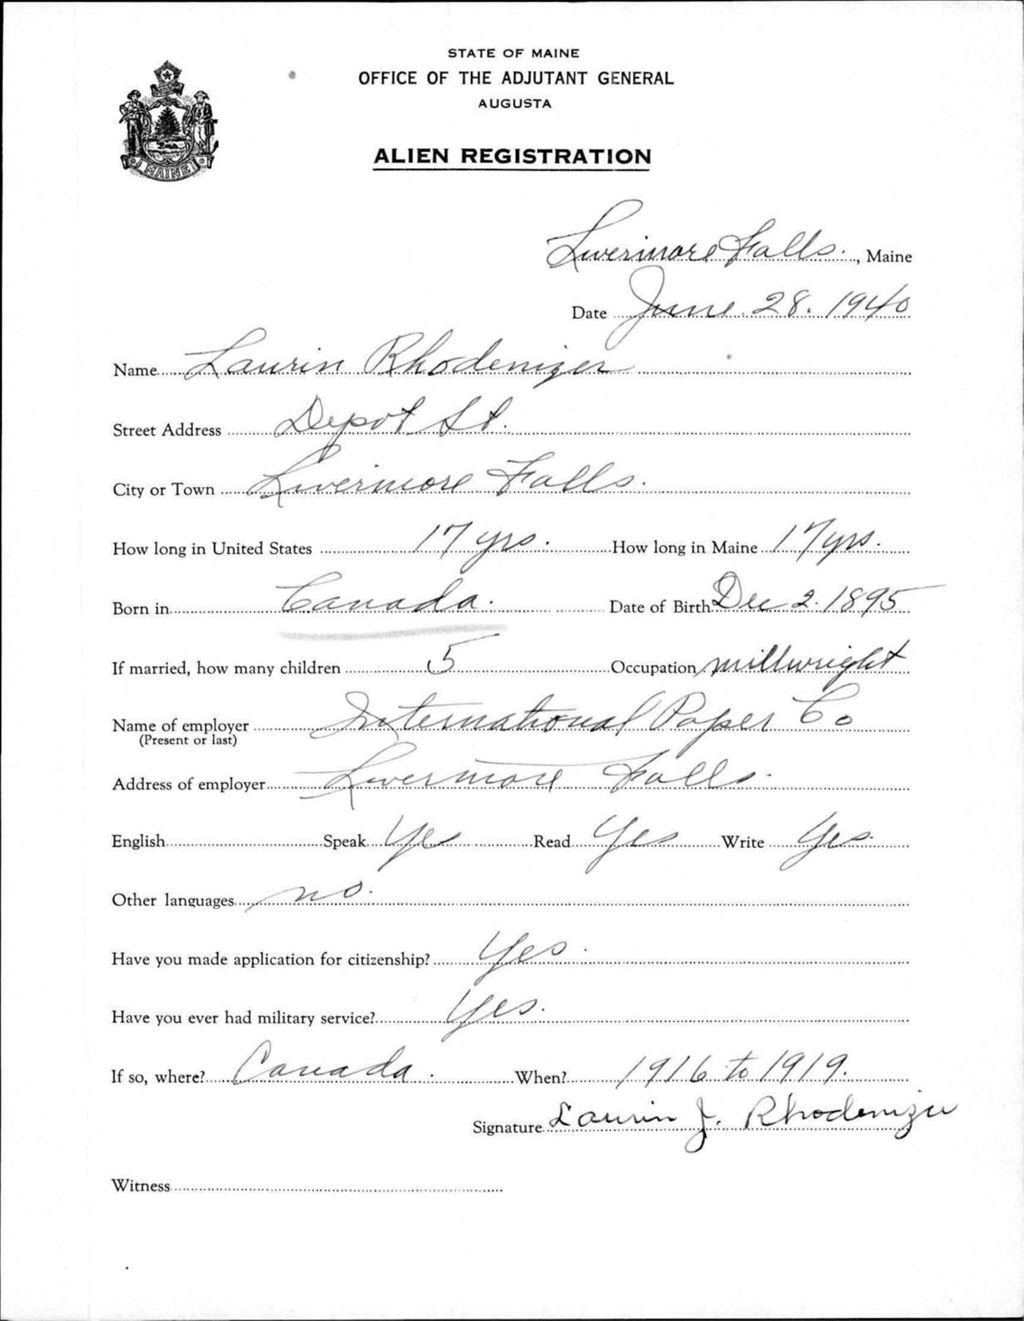 STATE OF MAINE
OFFICE OF THE ADJUTANT GENERAL
AUGUSTA
ALIEN REGISTRATION
MAINE
Livermore Falls., Maine
Date June 28. 1940
Name Laurin Rhodenizer
Street Address Depot St.
City or Town Livermore Falls.
How long in United States 17 yrs. How long in Maine 17 yrs.
Born in Canada. Date of Birth Dec 2. 1895
If married, how many children 5 Occupation millwright
Name of employer International Paper Co
(Present or last)
Address of employer Livermore Falls.
English Speak Yes Read Yes Write Yes.
Other languages no.
Have you made application for citizenship? Yes.
Have you ever had military service? Yes.
If so, where? Canada. When? 1916 to 1919.
Signature Laurin J. Rhodenizer
Witness